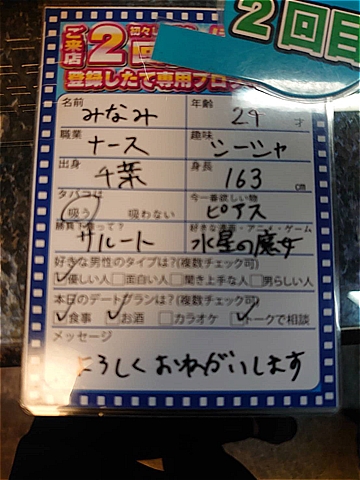 ご来店
2回
2回目
登録したて専用プロ
名前 みなみ 年齢 29 才
職業 ナース 趣味 シーシャ
出身 千葉 身長 163 cm
タバコは 吸う 吸わない 今一番欲しい物 ピアス
勝負下着って? サルート 好きな漫画・アニメ・ゲーム 水星の魔女
好きな男性のタイプは?(複数チェック可)
優しい人 面白い人 聞き上手な人 男らしい人
本日のデートプランは?(複数チェック可)
食事 お酒 カラオケ トークで相談
メッセージ
よろしくおねがいします